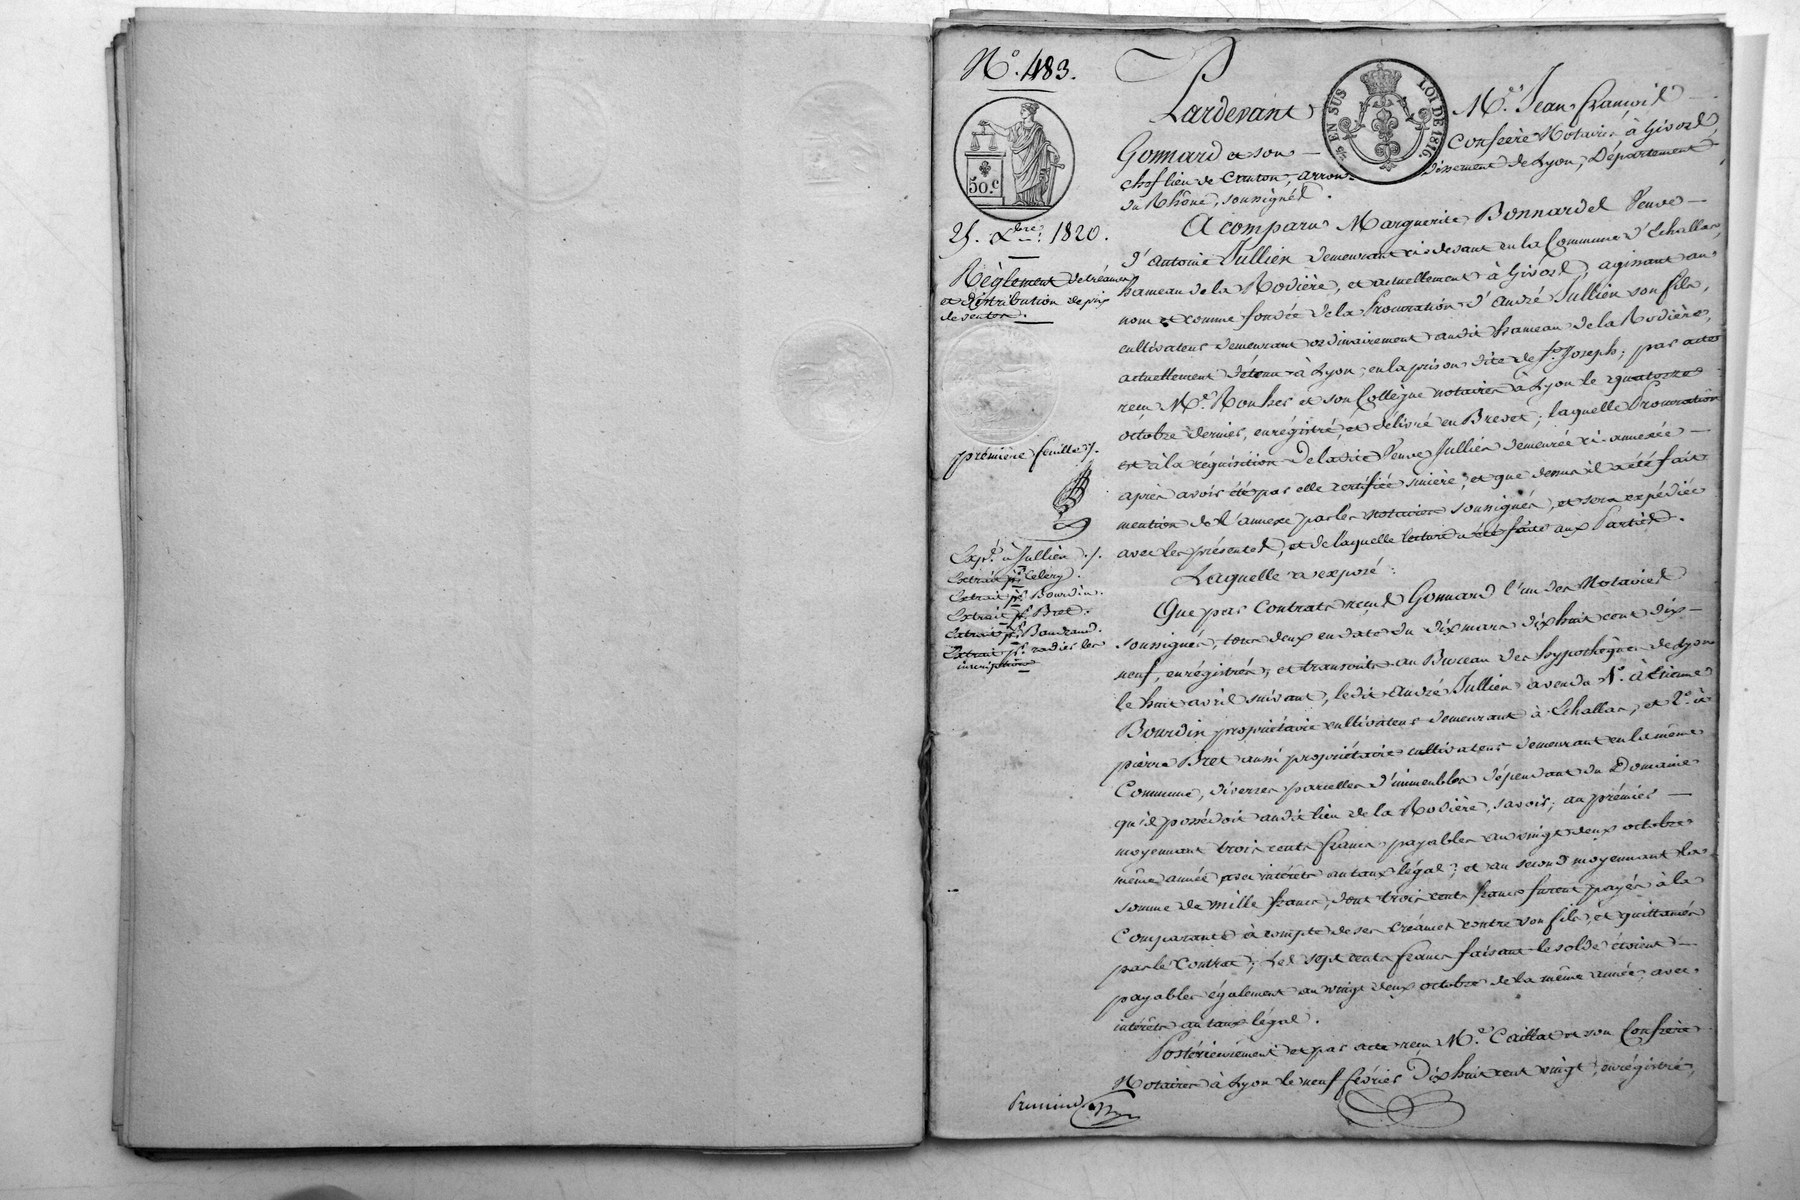 N.° 483.
50.c
25. Xbre. 1820.
Règlement de créances
et distribution de prix
de ventes.
première feuille ./.
Exp.é à Jullien ./.
Extrait p.r Celery.
Extrait p.r Bourdin.
Extrait p.r Bret.
Extrait p.r Baudrand.
Extrait p.r radier les
inscriptions
EN SUS LOI DE 1816
Pardevant M.e Jean françois
Gonnard et son Confrère Notaires à Givors
chef lieu de Canton, arrondissement de Lyon, Département
du Rhône, soussignés.
A comparu Marguerite Bonnardel Veuve
d'antoine Jullien demeurant ci devant en la Commune d'Echallas,
hameau de la Rodière, et actuellement à Givors, agissant au
nom et comme fondée de la Procuration d'andré Jullien son fils,
cultivateur demeurant ordinairement audit hameau de la Rodière,
actuellement détenu à Lyon, en la prison dite de St. Joseph; par acte
reçu M.e Rouher et son Collègue notaires à Lyon le quatorze
octobre dernier, enrégistré, et délivré en Brevet; laquelle Procuration
est à la réquisition de ladite Veuve Jullien demeurée ci-annexée
après avoir été par elle certifiée sincère, et que dessus il a été fait
mention de l'annexe par les notaires soussignés, et sera expédiée
avec les présentes, et de laquelle lecture a été faite aux Parties.
Laquelle a exposé:
Que par Contrats reçus Gonnard l'un des Notaires
soussignés, tous deux en date du dix mars dix huit cent dix
neuf, enrégistrés, et transcrits au Bureau des hypothèques de Lyon
le huit avril suivant, ledit andré Jullien a vendu 1.° à Etienne
Bourdin propriétaire cultivateur demeurant à Echallas, et 2.° à
pierre Bret aussi propriétaire cultivateur demeurant en la même
Commune, diverses parcelles d'immeubles dépendant du Domaine
qu'il possédoit audit lieu de la Rodière, savoir; au prémier
moyennant trois cents francs payables au vingt deux octobre
même année avec intérêts au taux légal; et au second moyennant la
somme de mille francs, dont trois cents francs furent payés à la
Comparante à compte de ses créances contre son fils, et quittancés
par le Contrat; Les sept cents francs faisant le solde étoient
payables également au vingt deux octobre de la même année, avec
intérêts au taux légal.
Postérieurement et par acte reçu M.e Caillat et son Confrère
Notaires à Lyon le neuf février Dix huit cent vingt, enrégistré,